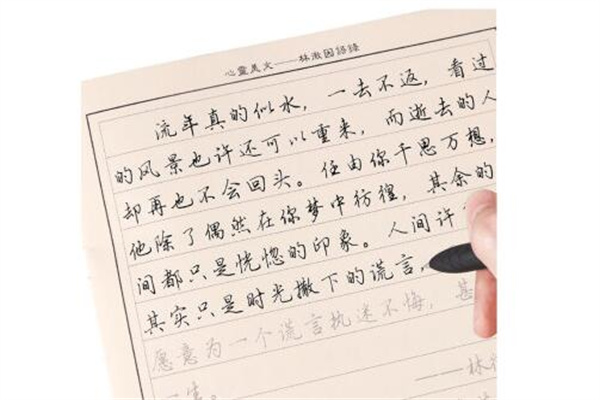 心灵美文——林徽因語錄
流年真的似水，一去不返，看过
的风景也许还可以重来，而逝去的人
却再也不会回头。任由你千思万想，
他除了偶然在你梦中彷徨，其余的
间都只是恍惚的印象。人间许
其实只是时光撒下的谎言，
愿意为一个谎言执迷不悔，甚
一生。
——林徽